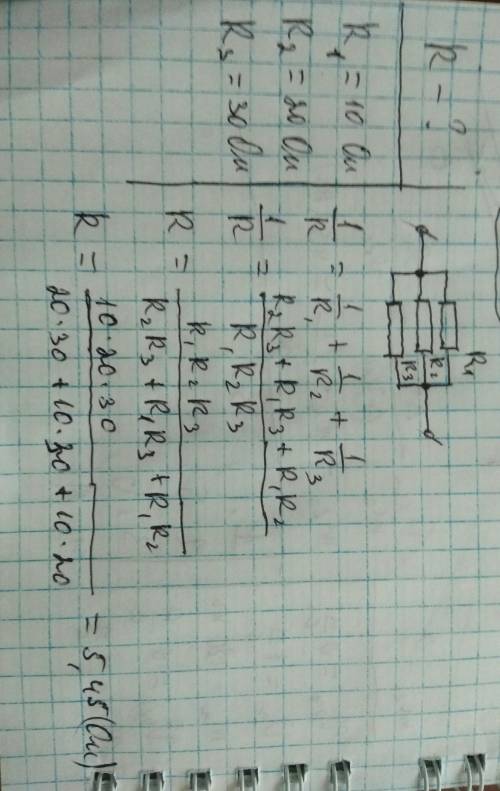 R₁ = 10 Ом
R₂ = 20 Ом
R₃ = 30 Ом
R - ?
R₁
R₂
R₃
1/R = 1/R₁ + 1/R₂ + 1/R₃
1/R = (R₂R₃ + R₁R₃ + R₁R₂)/(R₁R₂R₃)
R = (R₁R₂R₃)/(R₂R₃ + R₁R₃ + R₁R₂)
R = (10·20·30)/(20·30 + 10·30 + 10·20) = 5,45 (Ом)